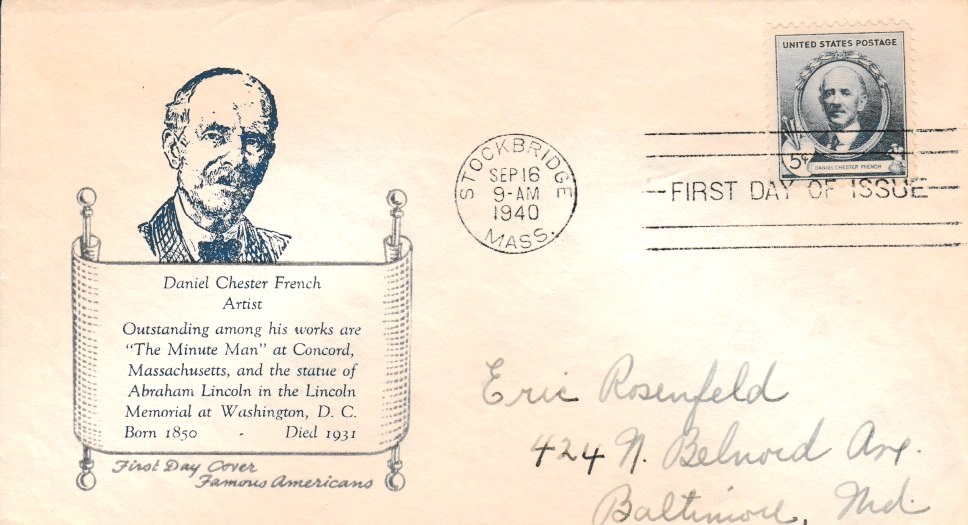 UNITED STATES POSTAGE
5¢
DANIEL CHESTER FRENCH
STOCKBRIDGE
SEP 16
9-AM
1940
MASS.
FIRST DAY OF ISSUE
Daniel Chester French
Artist
Outstanding among his works are
"The Minute Man" at Concord,
Massachusetts, and the statue of
Abraham Lincoln in the Lincoln
Memorial at Washington, D. C.
Born 1850 - Died 1931
First Day Cover
Famous Americans
Eric Rosenfeld
424 N. Belnord Ave.
Baltimore, Md.